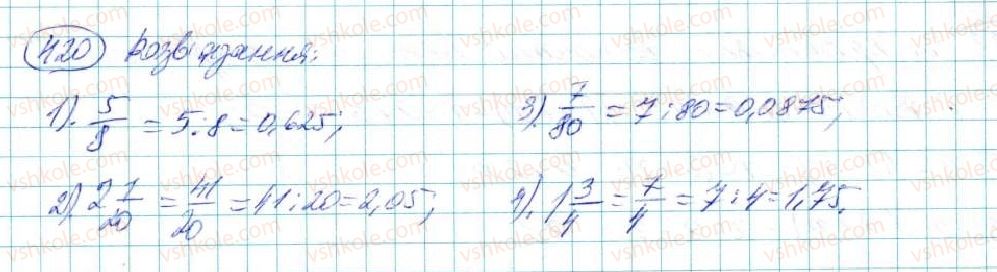 420 Розв'язання:
1). 5/8 = 5:8 = 0,625; 3). 7/80 = 7:80 = 0,0875;
2). 2 1/20 = 41/20 = 41:20 = 2,05; 4). 1 3/4 = 7/4 = 7:4 = 1,75.
vshkole.com